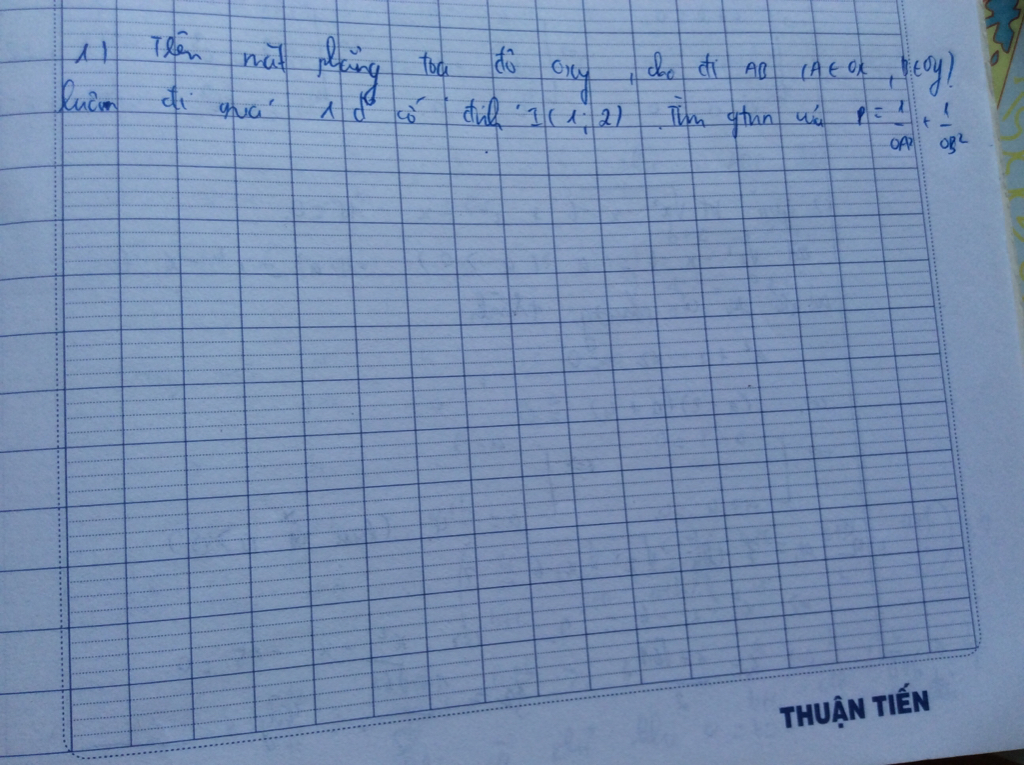 1) Trên mặt phẳng toạ độ Oxy, cho đt AB (A ∈ Ox, B ∈ Oy)
luôn đi qua 1 đ cố định I(1; 2). Tìm gtnn của P = 1/OA² + 1/OB²
THUẬN TIẾN